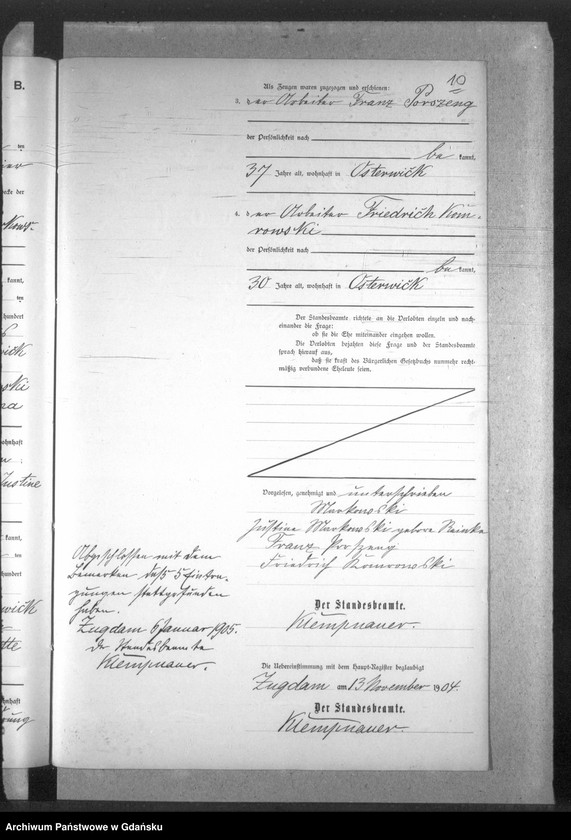 B.
10
Als Zeugen waren zugezogen und erschienen:
3. der Arbeiter Franz Porszeng
der Persönlichkeit nach
be kannt,
37 Jahre alt, wohnhaft in Osterwick
4. der Arbeiter Friedrich Kom-
rowski
der Persönlichkeit nach
be kannt,
30 Jahre alt, wohnhaft in Osterwick
Der Standesbeamte richtete an die Verlobten einzeln und nach-
einander die Frage:
ob sie die Ehe miteinander eingehen wollen.
Die Verlobten bejahten diese Frage und der Standesbeamte
sprach hierauf aus,
daß sie kraft des Bürgerlichen Gesetzbuchs nunmehr recht-
mäßig verbundene Eheleute seien.
Vorgelesen, genehmigt und unterschrieben
Markowski
Justine Markowski geborne Reinke
Franz Porszeng
Friedrich Komrowski
Der Standesbeamte.
Klempnauer.
Abgeschlossen mit dem
Bemerken, daß 5 Eintra-
gungen stattgefunden
haben.
Zugdam 6 Januar 1905.
Der Standesbeamte
Klempnauer.
Die Uebereinstimmung mit dem Haupt-Register beglaubigt
Zugdam am 13 November 1904.
Der Standesbeamte.
Klempnauer.
Archiwum Państwowe w Gdańsku